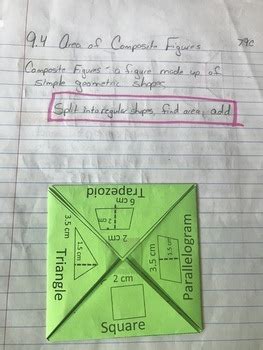 9.4 Area of Composite Figures 79C
Composite Figures - a figure made up of
simple geometric shapes
Split into regular shapes, find area, add
Trapezoid
6 cm
2 cm
Triangle
3.5 cm
1.5 cm
Parallelogram
3.5 cm
1.5 cm
2 cm
Square